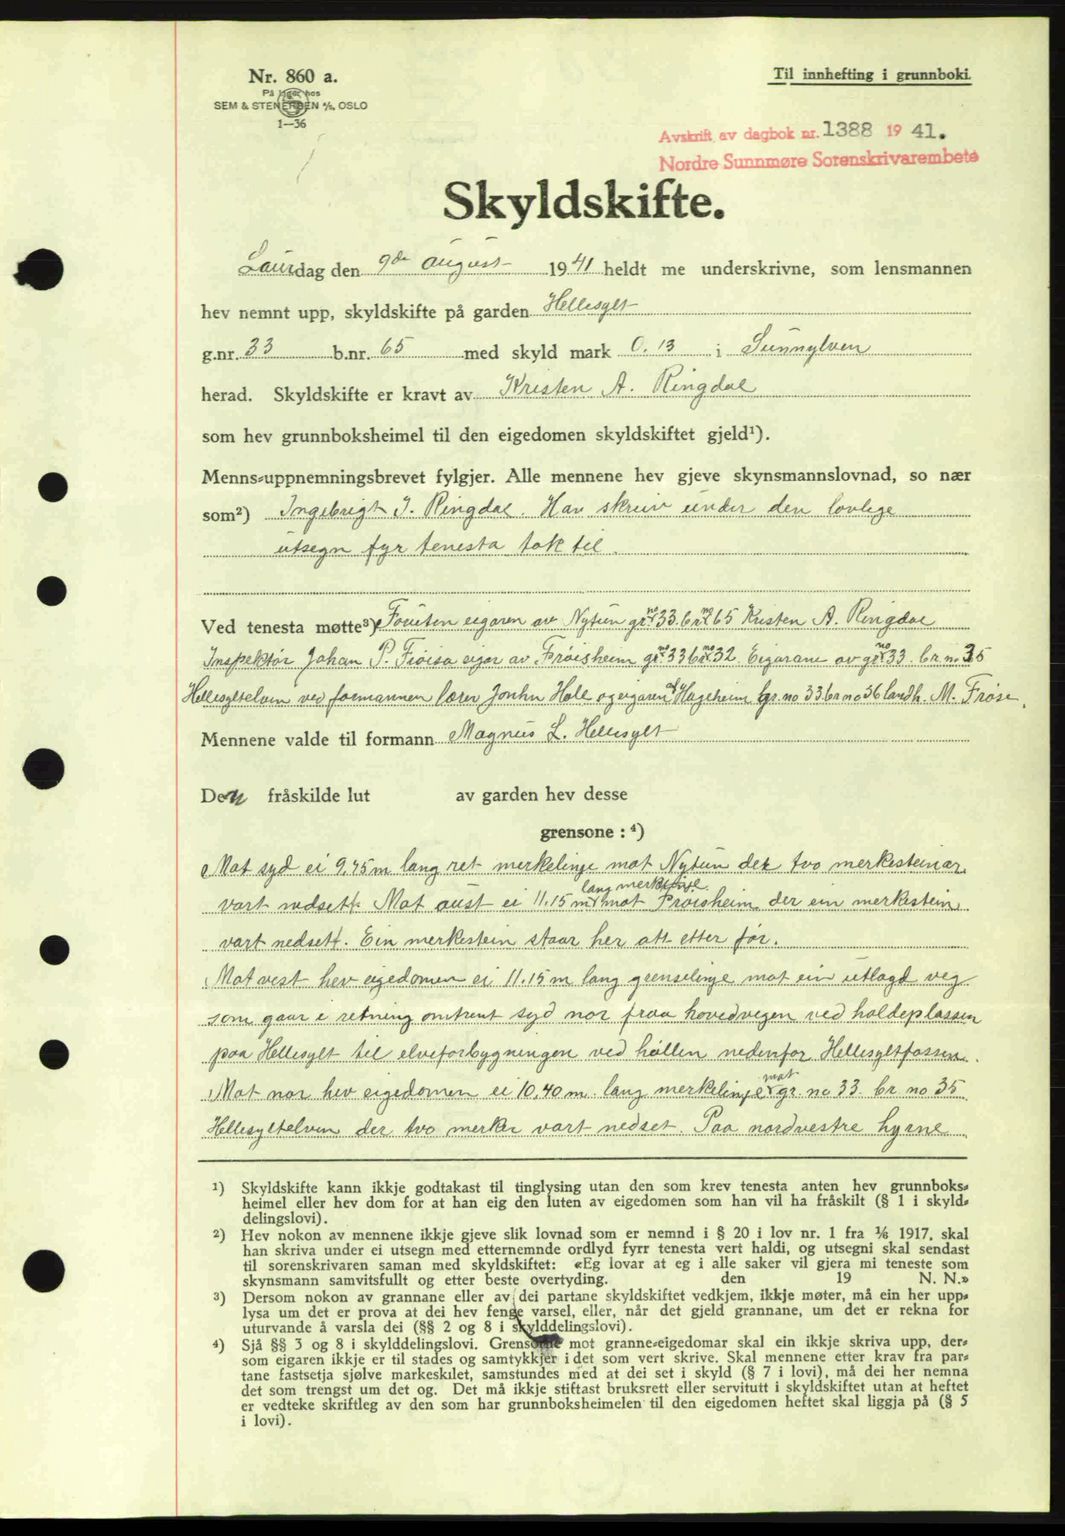 Nr. 860 a.
På lager hos
SEM & STENERSEN A/S, OSLO
1—36
Til innhefting i grunnboki.
Avskrift av dagbok nr. 1388 19 41.
Nordre Sunnmøre Sorenskrivarembete
Skyldskifte.
Laurdag den 9de august 1941 heldt me underskrivne, som lensmannen
hev nemnt upp, skyldskifte på garden Hellesylt
g.nr. 33 b.nr. 65 med skyld mark 0.13 i Sunnylven
herad. Skyldskifte er kravt av Kristen A. Ringdal
som hev grunnboksheimel til den eigedomen skyldskiftet gjeld¹).
Menns-uppnemningsbrevet fylgjer. Alle mennene hev gjeve skynsmannslovnad, so nær
som²) Ingebrigt J. Ringdal. Han skreiv under den lovlege
utsegn fyr tenesta tok til.
Ved tenesta møtte³) Foruten eigaren av Nytun gr no 33. br no 65 Kristen A. Ringdal
Inspektør Johan P. Frøisa eigar av Frøisheim gr no 33 br no 32. Eigarane av gr no 33. br. no 35
Hellesyltelven ved formannen lærer Jonhn Hole og eigaren af Hageheim gr. no 33. br no 36 landh. M. Frøse.
Mennene valde til formann Magnus L. Hellesylt
Den fråskilde lut av garden hev desse
grensone : ⁴)
Mot syd ei 9,75 m lang ret merkelinje mot Nytun der tvo merkesteinar
vart nedsett. Mot aust ei 11.15 m lang merkelinje mot Frøisheim der ein merkestein
vart nedsett. Ein merkestein staar her att etter før.
Mot vest hev eigedomen ei 11.15 m lang grenselinje mot ein utlagd veg
som gaar i retning omtrent syd nor fraa hovedvegen ved holdeplassen
paa Hellesylt til elveforbygningen ved høllen nedenfor Hellesyltfossen.
Mot nor hev eigedomen ei 10,40 m. lang merkelinje mot gr. no 33. br no 35
Hellesyltelven der tvo merker vart nedset. Paa nordvestre hyrne
¹) Skyldskifte kann ikkje godtakast til tinglysing utan den som krev tenesta anten hev grunnboks-
heimel eller hev dom for at han eig den luten av eigedomen som han vil ha fråskilt (§ 1 i skyld-
delingslovi).
²) Hev nokon av mennene ikkje gjeve slik lovnad som er nemnd i § 20 i lov nr. 1 fra 1/6 1917, skal
han skriva under ei utsegn med etternemnde ordlyd fyrr tenesta vert haldi, og utsegni skal sendast
til sorenskrivaren saman med skyldskiftet: «Eg lovar at eg i alle saker vil gjera mi teneste som
skynsmann samvitsfullt og etter beste overtyding. den 19 N. N.»
³) Dersom nokon av grannane eller av dei partane skyldskiftet vedkjem, ikkje møter, må ein her upp-
lysa um det er prova at dei hev fenge varsel, eller, når det gjeld grannane, um det er rekna for
uturvande å varsla dei (§§ 2 og 8 i skylddelingslovi).
⁴) Sjå §§ 3 og 8 i skylddelingslovi. Grensone mot granne-eigedomar skal ein ikkje skriva upp, der-
som eigaren ikkje er til stades og samtykkjer i det som vert skrive. Skal mennene etter krav fra par-
tane fastsetja sjølve markeskilet, samstundes med at dei set i skyld (§ 7 i lovi), må dei her nemna
det som trengst um det og. Det må ikkje stiftast bruksrett eller servitutt i skyldskiftet utan at heftet
er vedteke skriftleg av den som har grunnboksheimelen til den eigedomen heftet skal liggja på (§ 5
i lovi).